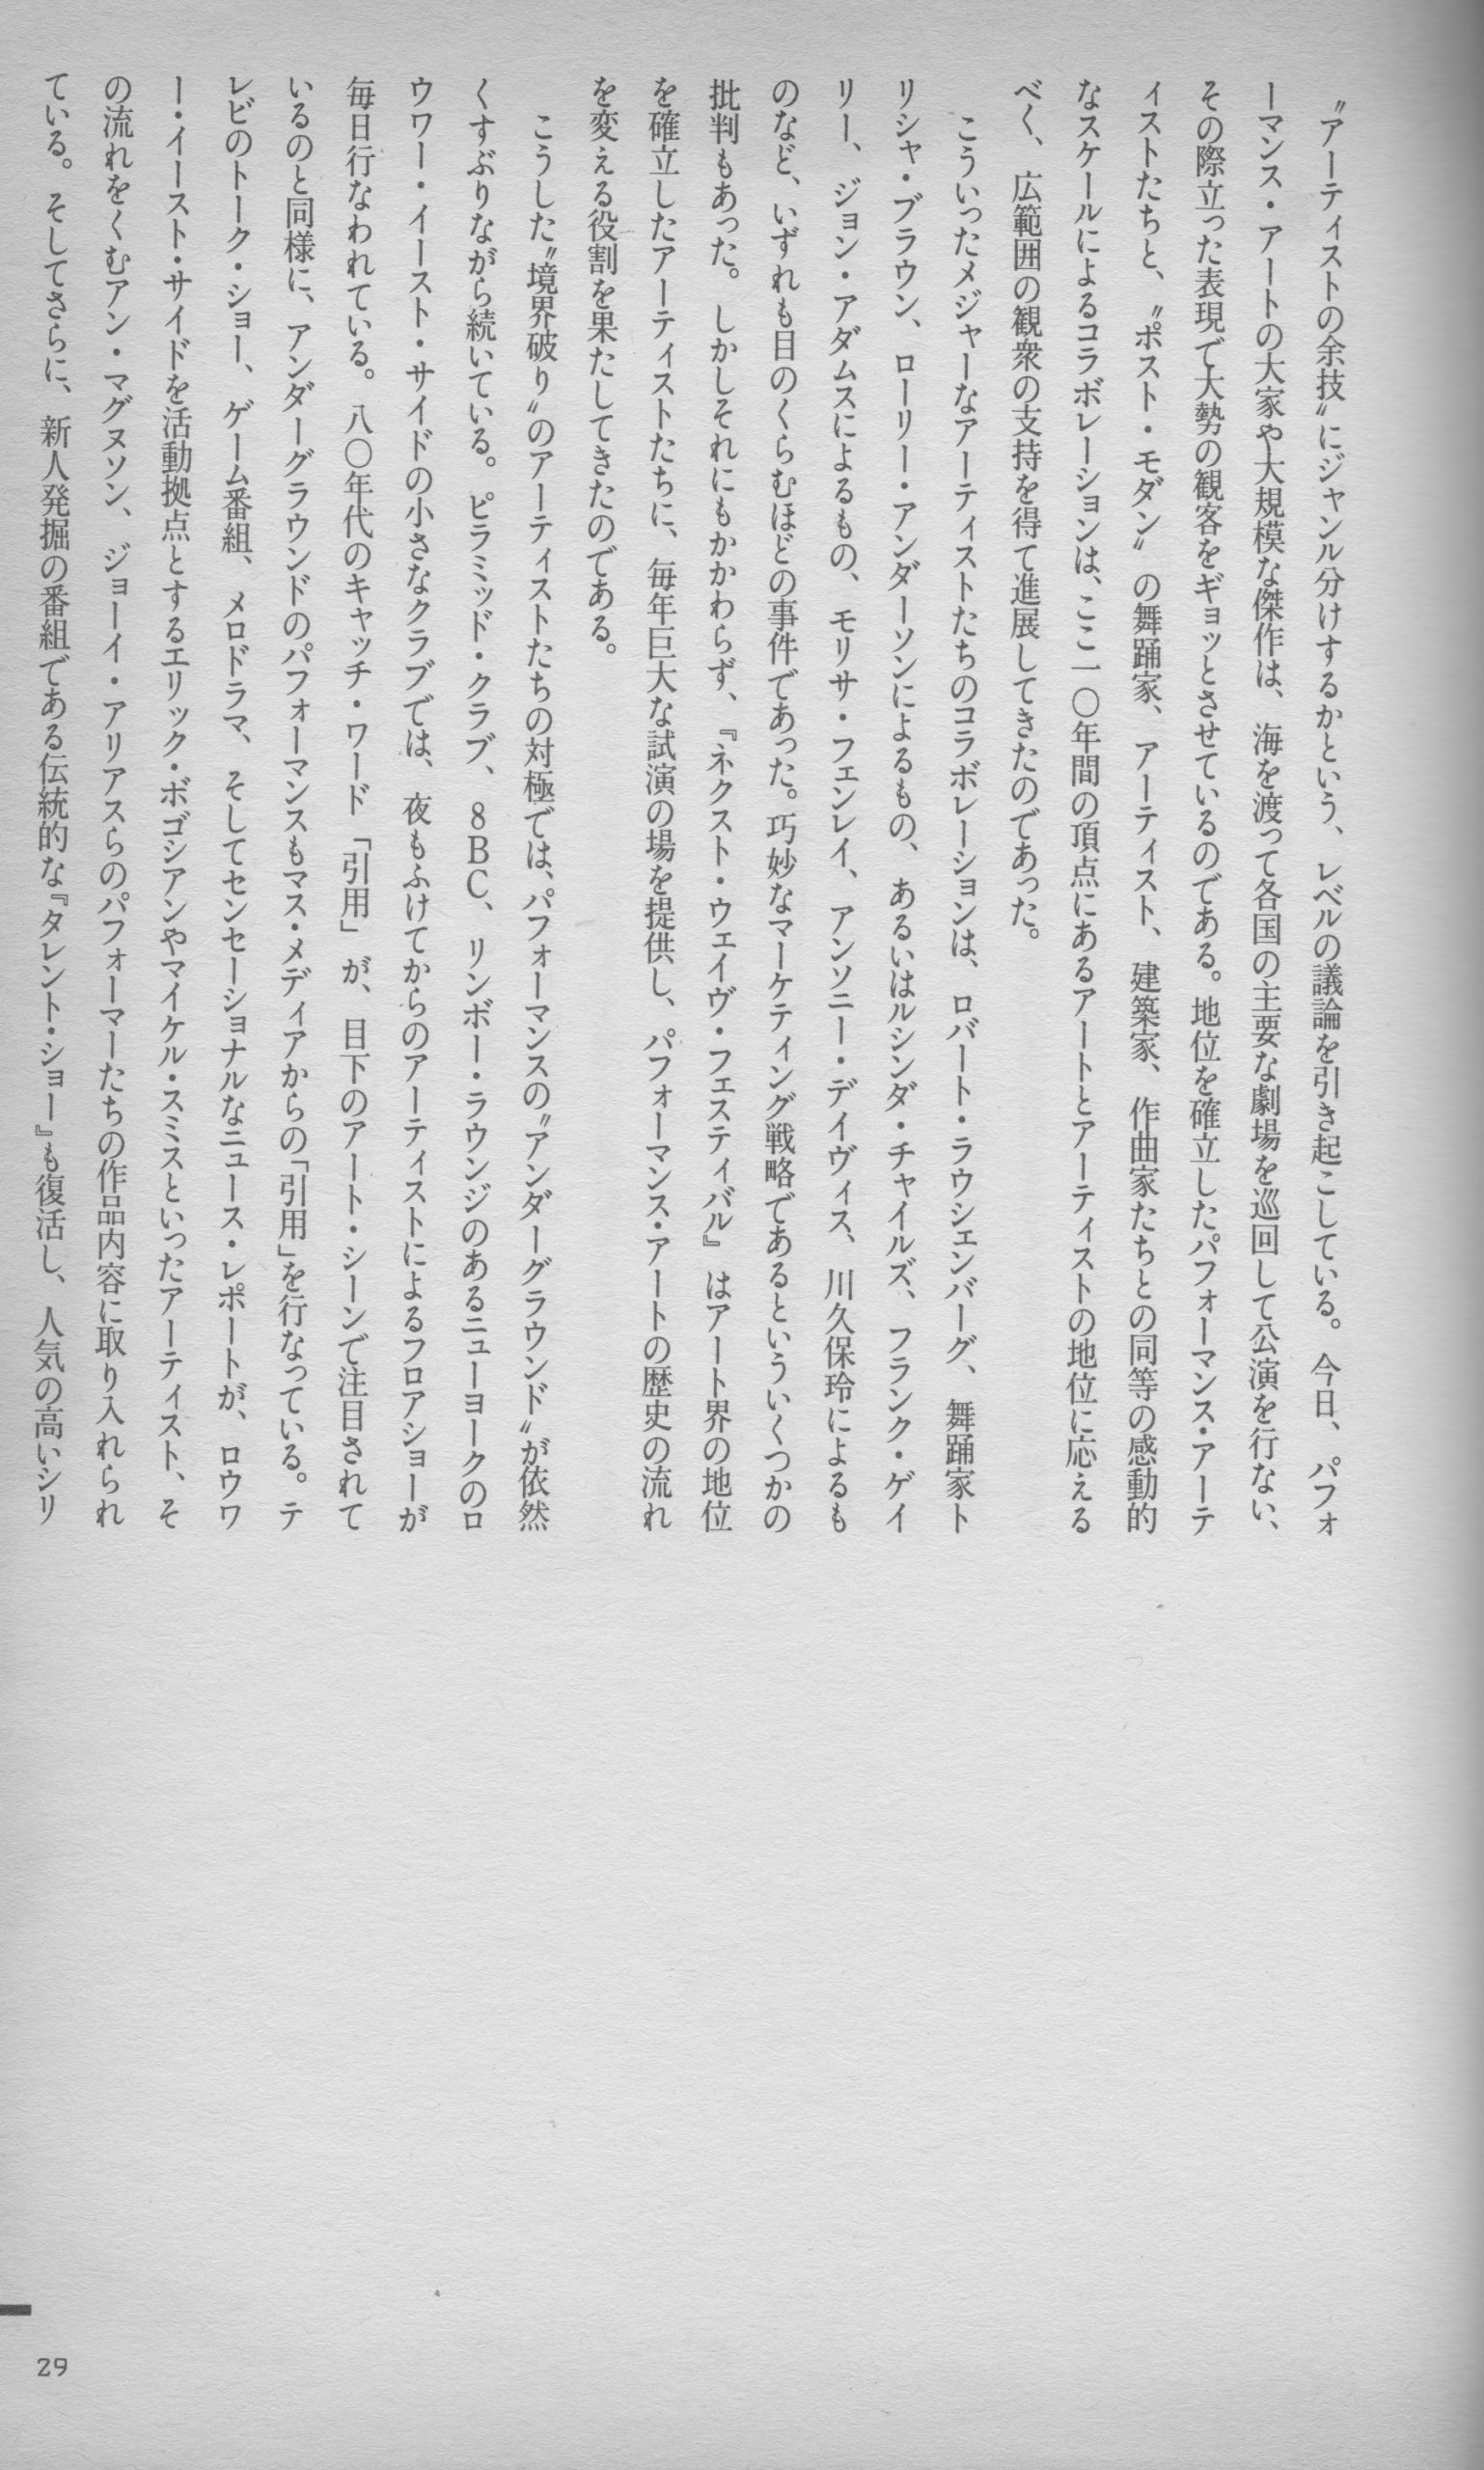 〝アーティストの余技〟にジャンル分けするかという、レベルの議論を引き起こしている。今日、パフォ
ーマンス・アートの大家や大規模な傑作は、海を渡って各国の主要な劇場を巡回して公演を行ない、
その際立った表現で大勢の観客をギョッとさせているのである。地位を確立したパフォーマンス・アーテ
ィストたちと、〝ポスト・モダン〟の舞踊家、アーティスト、建築家、作曲家たちとの同等の感動的
なスケールによるコラボレーションは、ここ一〇年間の頂点にあるアートとアーティストの地位に応える
べく、広範囲の観衆の支持を得て進展してきたのであった。
こういったメジャーなアーティストたちのコラボレーションは、ロバート・ラウシェンバーグ、舞踊家ト
リシャ・ブラウン、ローリー・アンダーソンによるもの、あるいはルシンダ・チャイルズ、フランク・ゲイ
リー、ジョン・アダムスによるもの、モリサ・フェンレイ、アンソニー・デイヴィス、川久保玲によるも
のなど、いずれも目のくらむほどの事件であった。巧妙なマーケティング戦略であるといういくつかの
批判もあった。しかしそれにもかかわらず、『ネクスト・ウェイヴ・フェスティバル』はアート界の地位
を確立したアーティストたちに、毎年巨大な試演の場を提供し、パフォーマンス・アートの歴史の流れ
を変える役割を果たしてきたのである。
こうした〝境界破り〟のアーティストたちの対極では、パフォーマンスの〝アンダーグラウンド〟が依然
くすぶりながら続いている。ピラミッド・クラブ、8BC、リンボー・ラウンジのあるニューヨークのロ
ウワー・イースト・サイドの小さなクラブでは、夜もふけてからのアーティストによるフロアショーが
毎日行なわれている。八〇年代のキャッチ・ワード「引用」が、目下のアート・シーンで注目されて
いるのと同様に、アンダーグラウンドのパフォーマンスもマス・メディアからの「引用」を行なっている。テ
レビのトーク・ショー、ゲーム番組、メロドラマ、そしてセンセーショナルなニュース・レポートが、ロウワ
ー・イースト・サイドを活動拠点とするエリック・ボゴシアンやマイケル・スミスといったアーティスト、そ
の流れをくむアン・マグヌソン、ジョーイ・アリアスらのパフォーマーたちの作品内容に取り入れられ
ている。そしてさらに、新人発掘の番組である伝統的な『タレント・ショー』も復活し、人気の高いシリ
29